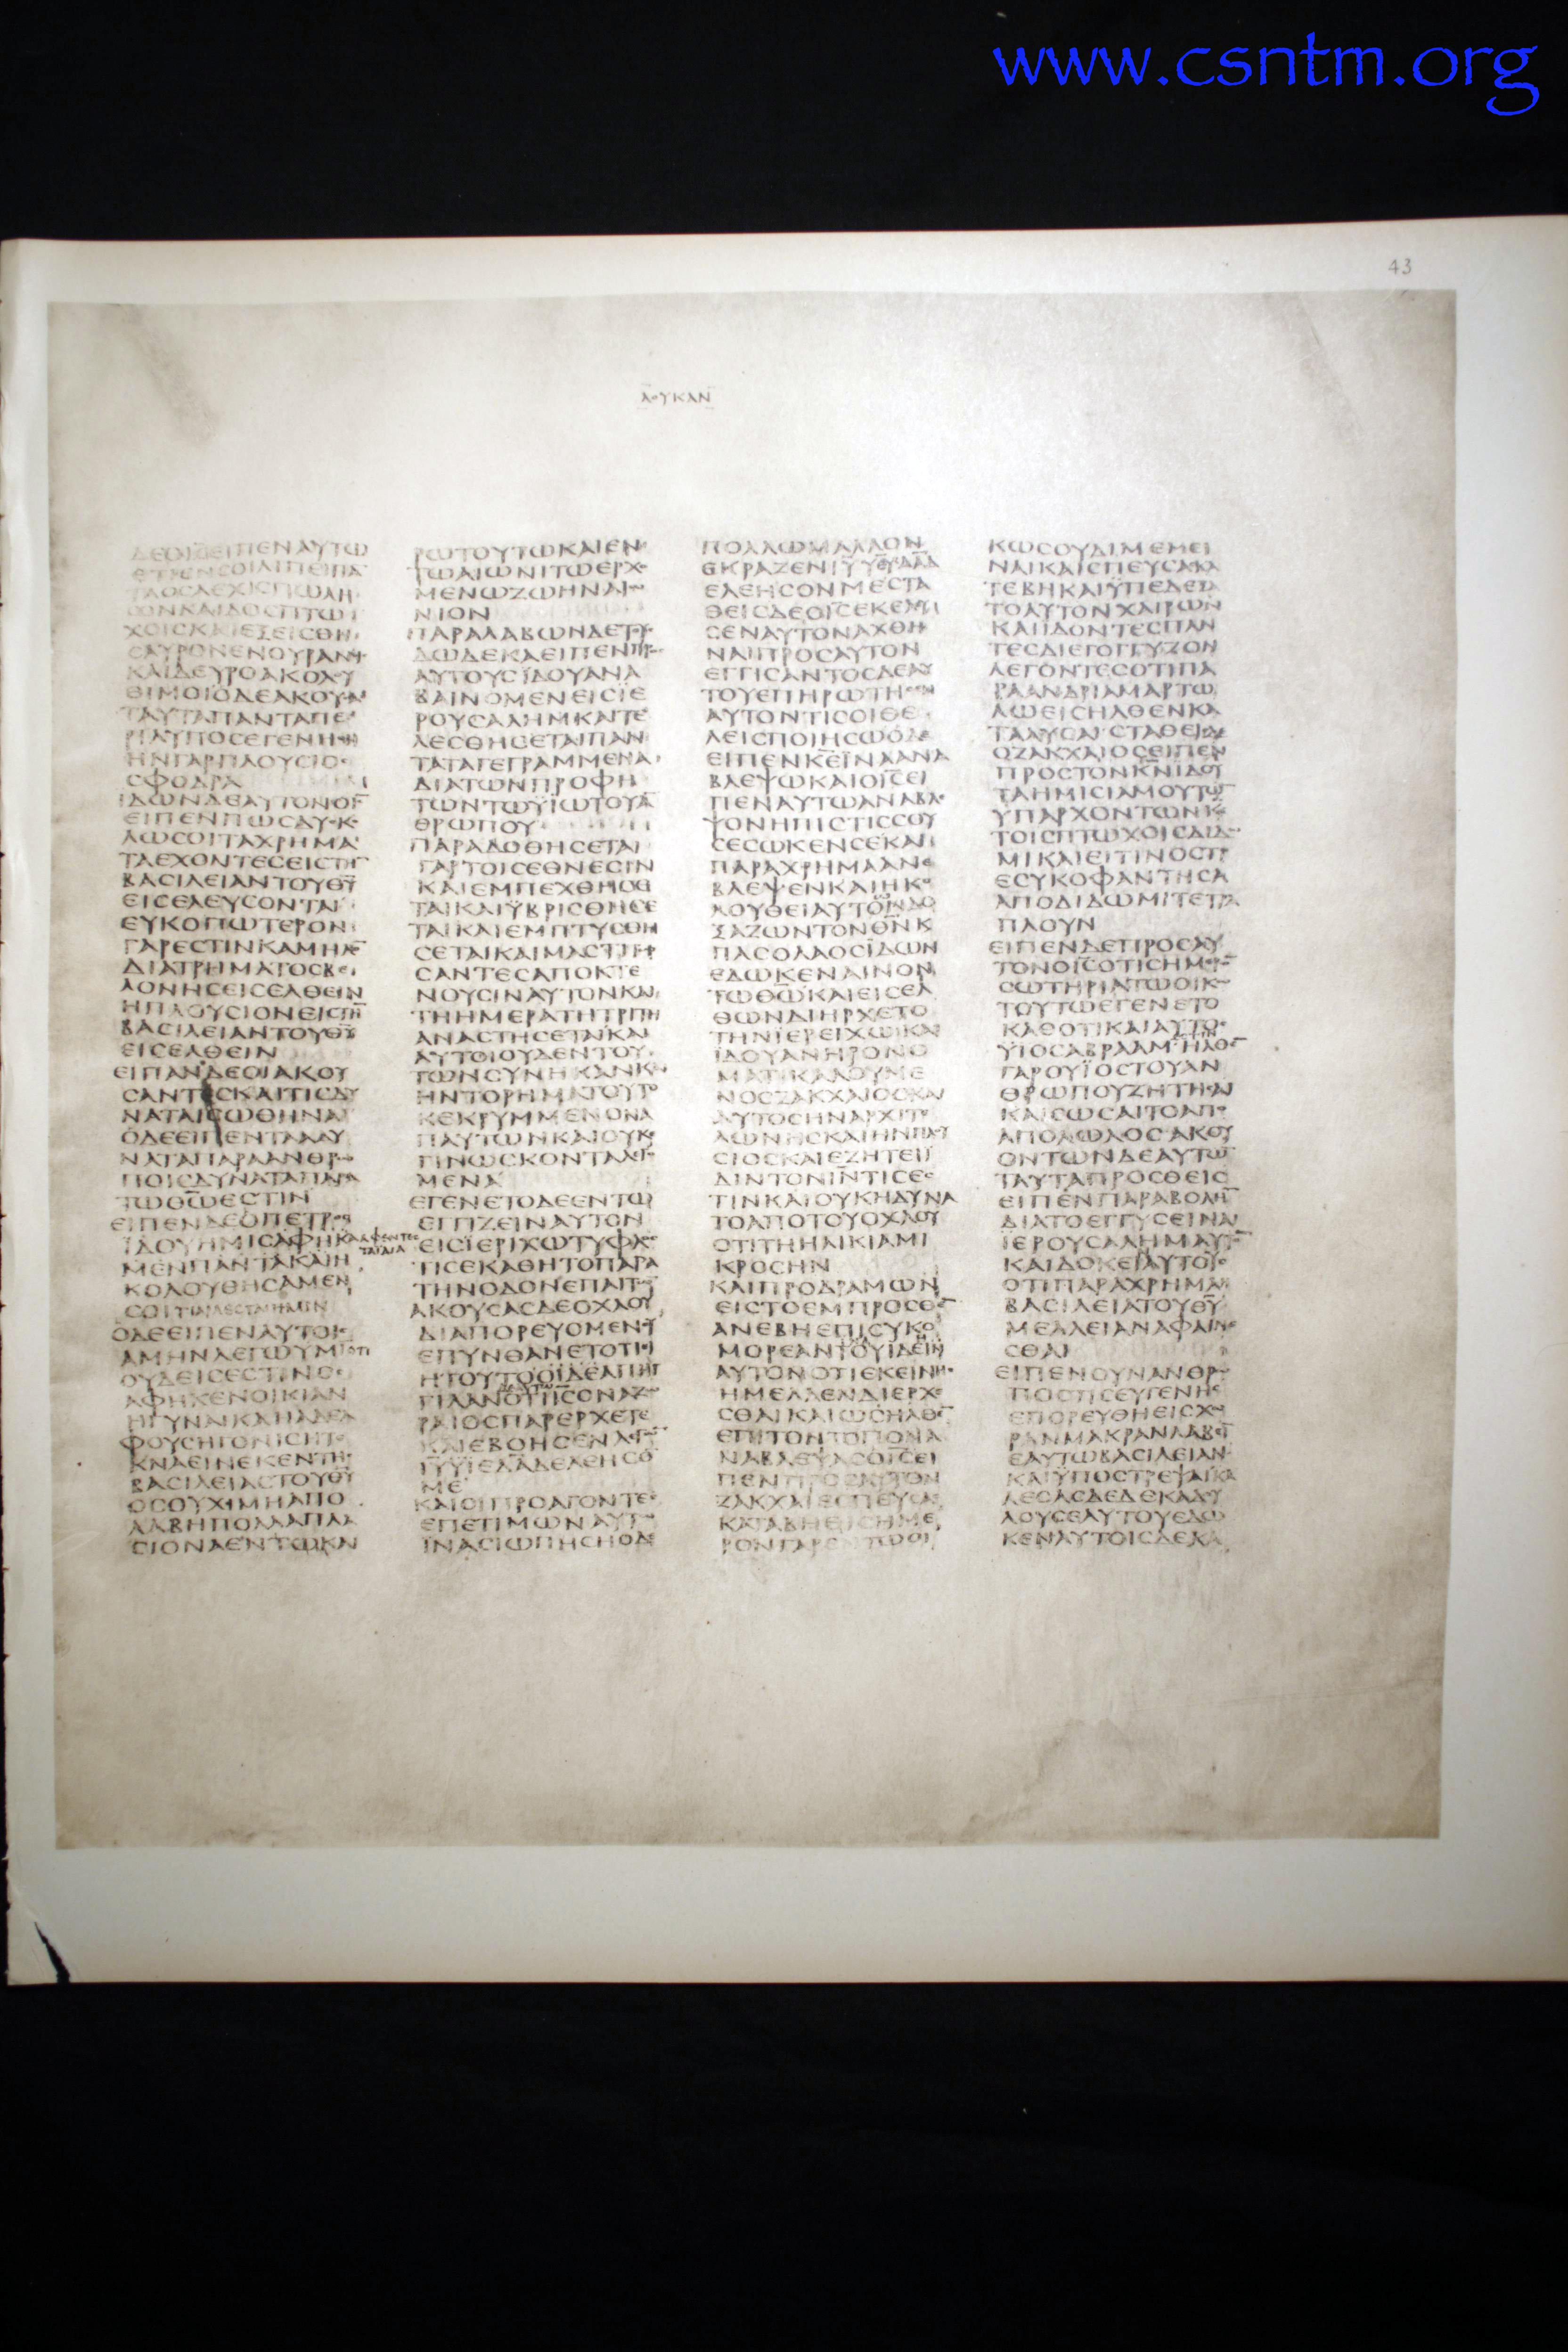 www.csntm.org
43
ΛΟΥΚΑΝ
ΔΕΟΙ̅C̅ΕΙΠΕΝΑΥΤΩ
ΧΟΙCΚΑΙΕΞΕΙCΘΗ
CΑΥΡΟΝΕΝΟΥΡΑΝΩ
ΚΑΙΔΕΥΡΟΑΚΟΛΟΥ
ΘΙΜΟΙΟΔΕΑΚΟΥCΑC
ΤΑΥΤΑΠΑΝΤΑΠΕ
ΡΙΛΥΠΟCΕΓΕΝΗΘΗ
ΗΝΓΑΡΠΛΟΥCΙΟC
CΦΟΔΡΑ
ΙΔΩΝΔΕΑΥΤΟΝΟΙ̅C̅
ΕΙΠΕΝΠΩCΔΥCΚΟ
ΛΩCΟΙΤΑΧΡΗΜΑ
ΤΑΕΧΟΝΤΕCΕΙCΤΗ̅
ΒΑCΙΛΕΙΑΝΤΟΥΘ̅Υ̅
ΕΙCΕΛΕΥCΟΝΤΑΙ
ΕΥΚΟΠΩΤΕΡΟΝ
ΓΑΡΕCΤΙΝΚΑΜΗΛΟ̅
ΔΙΑΤΡΗΜΑΤΟCΒΕ
ΛΟΝΗCΕΙCΕΛΘΕΙΝ
ΗΠΛΟΥCΙΟΝΕΙCΤΗ̅
ΒΑCΙΛΕΙΑΝΤΟΥΘ̅Υ̅
ΕΙCΕΛΘΕΙΝ
ΕΙΠΑΝΔΕΟΙΑΚΟΥ
CΑΝΤΕCΚΑΙΤΙCΔΥ
ΝΑΤΑΙCΩΘΗΝΑΙ
ΟΔΕΕΙΠΕΝΤΑΑΔΥ
ΝΑΤΑΠΑΡΑΑΝΘΡΩ
ΠΟΙCΔΥΝΑΤΑΠΑΡΑ
ΤΩΘ̅Ω̅ΕCΤΙΝ
ΕΙΠΕΝΔΕΟΠΕΤΡΟC
ΪΔΟΥΗΜΙCΑΦΗΚΑ
ΑΦΕΝΤΕC
ΤΑΪΔΙΑ
ΜΕΝΠΑΝΤΑΚΑΙΗ
ΚΟΛΟΥΘΗCΑΜΕΝ
CΟΙΤΙΑΡΑΕCΤΑΙΗΜΙΝ
ΟΔΕΕΙΠΕΝΑΥΤΟΙC
ΑΜΗΝΛΕΓΩΥΜΙΟΤΙ
ΟΥΔΕΙCΕCΤΙΝΟC
ΑΦΗΚΕΝΟΙΚΙΑΝ
ΗΓΥΝΑΙΚΑΗΑΔΕΛ
ΦΟΥCΗΓΟΝΙCΗΤΕ
ΚΝΑΕΙΝΕΚΕΝΤΗC
ΒΑCΙΛΕΙΑCΤΟΥΘ̅Υ̅
ΟCΟΥΧΙΜΗΑΠΟ
ΛΑΒΗΠΟΛΛΑΠΛΑ
CΙΟΝΑΕΝΤΩΚΑΙ
ΡΩΤΟΥΤΩΚΑΙΕΝ
ΤΩΑΙΩΝΙΤΩΕΡΧΟ
ΜΕΝΩΖΩΗΝΑΙΩ
ΝΙΟΝ
ΠΑΡΑΛΑΒΩΝΔΕΤΟΥC
ΔΩΔΕΚΑΕΙΠΕΝΠΡΟC
ΑΥΤΟΥCΪΔΟΥΑΝΑ
ΒΑΙΝΟΜΕΝΕΙCΪΕ
ΡΟΥCΑΛΗΜΚΑΙΤΕ
ΛΕCΘΗCΕΤΑΙΠΑΝ
ΤΑΤΑΓΕΓΡΑΜΜΕΝΑ
ΔΙΑΤΩΝΠΡΟΦΗ
ΤΩΝΤΩΫΙΩΤΟΥΑ̅
ΘΡΩΠΟΥ
ΠΑΡΑΔΟΘΗCΕΤΑΙ
ΓΑΡΤΟΙCΕΘΝΕCΙΝ
ΚΑΙΕΜΠΕΧΘΗCΕ
ΤΑΙΚΑΙΫΒΡΙCΘΗCΕ
ΤΑΙΚΑΙΕΜΠΤΥCΘΗ
CΕΤΑΙΚΑΙΜΑCΤΙΓΩ
CΑΝΤΕCΑΠΟΚΤΕ
ΝΟΥCΙΝΑΥΤΟΝΚΑΙ
ΤΗΗΜΕΡΑΤΗΤΡΙΤΗ
ΑΝΑCΤΗCΕΤΑΙΚΑΙ
ΑΥΤΟΙΟΥΔΕΝΤΟΥ
ΤΩΝCΥΝΗΚΑΝΚΑΙ
ΗΝΤΟΡΗΜΑΤΟΥΤΟ
ΚΕΚΡΥΜΜΕΝΟΝΑ
ΠΑΥΤΩΝΚΑΙΟΥΚΕ
ΓΙΝΩCΚΟΝΤΑΛΕΓΟ
ΜΕΝΑ
ΕΓΕΝΕΤΟΔΕΕΝΤΩ
ΕΓΓΙΖΕΙΝΑΥΤΟΝ
ΕΙCΪΕΡΙΧΩΤΥΦΛΟC
ΤΙCΕΚΑΘΗΤΟΠΑΡΑ
ΤΗΝΟΔΟΝΕΠΑΙΤΩ̅
ΑΚΟΥCΑCΔΕΟΧΛΟΥ
ΔΙΑΠΟΡΕΥΟΜΕΝΟΥ
ΕΠΥΝΘΑΝΕΤΟΤΙΕΙ
ΡΑΙΟCΠΑΡΕΡΧΕΤΕ
ΚΑΙΕΒΟΗCΕΝΛΕΓΩ̅
Ι̅Υ̅ΫΙΕΔΑ̅Δ̅ΕΛΕΗCΟ̅
ΜΕ
ΚΑΙΟΙΠΡΟΑΓΟΝΤΕC
ΕΠΕΤΙΜΩΝΑΥΤΩ
ΪΝΑCΙΩΠΗCΗΟΔΕ
ΠΟΛΛΩΜΑΛΛΟΝ
ΕΚΡΑΖΕΝΙ̅Υ̅ΥΕΥΔΑ̅Δ̅
ΕΛΕΗCΟΝΜΕCΤΑ
ΘΕΙCΔΕΟΙ̅C̅ΕΚΕΛΕΥ
CΕΝΑΥΤΟΝΑΧΘΗ
ΝΑΙΠΡΟCΑΥΤΟΝ
ΕΓΓΙCΑΝΤΟCΔΕΑΥ
ΤΟΥΕΠΗΡΩΤΗCΕΝ
ΑΥΤΟΝΤΙCΟΙΘΕ
ΛΕΙCΠΟΙΗCΩΟΔΕ
ΕΙΠΕΝΚ̅Ε̅ΪΝΑΑΝΑ
ΒΛΕΨΩΚΑΙΟΙ̅C̅ΕΙ
ΠΕΝΑΥΤΩΑΝΑΒΛΕ
ΨΟΝΗΠΙCΤΙCCΟΥ
CΕCΩΚΕΝCΕΚΑΙ
ΠΑΡΑΧΡΗΜΑΑΝΕ
ΒΛΕΨΕΝΚΑΙΗΚΟ
ΛΟΥΘΕΙΑΥΤΩΔΟ
ΞΑΖΩΝΤΟΝΘ̅Ν̅Κ
ΠΑCΟΛΑΟCΪΔΩΝ
ΕΔΩΚΕΝΑΙΝΟΝ
ΤΩΘ̅Ω̅ΚΑΙΕΙCΕΛ
ΘΩΝΔΙΗΡΧΕΤΟ
ΤΗΝΪΕΡΕΙΧΩΚΑΙ
ΪΔΟΥΑΝΗΡΟΝΟ
ΜΑΤΙΚΑΛΟΥΜΕ
ΝΟCΖΑΚΧΑΙΟCΚΑΙ
ΑΥΤΟCΗΝΑΡΧΙΤΕ
ΛΩΝΗCΚΑΙΗΝΠΛΟΥ
CΙΟCΚΑΙΕΖΗΤΕΙΪ
ΔΙΝΤΟΝΙ̅Ν̅ΤΙCΕC
ΤΙΝΚΑΙΟΥΚΗΔΥΝΑ
ΤΟΑΠΟΤΟΥΟΧΛΟΥ
ΟΤΙΤΗΗΛΙΚΙΑΜΙ
ΚΡΟCΗΝ
ΚΑΙΠΡΟΔΡΑΜΩΝ
ΕΙCΤΟΕΜΠΡΟCΘΕ̅
ΑΝΕΒΗΕΠΙCΥΚΟ
ΜΟΡΕΑΝΪΝΑΪΔΗ
ΑΥΤΟΝΟΤΙΕΚΕΙΝΗC
ΗΜΕΛΛΕΝΔΙΕΡΧΕ
CΘΑΙΚΑΙΩCΗΛΘΕ̅
ΕΠΙΤΟΝΤΟΠΟΝΑ
ΝΑΒΛΕΨΑCΟΙ̅C̅ΕΙ
ΠΕΝΠΡΟCΑΥΤΟΝ
ΖΑΚΧΑΙΕCΠΕΥCΑC
ΚΑΤΑΒΗΘΙCΗΜΕ
ΡΟΝΓΑΡΕΝΤΩΟΙ
ΚΩCΟΥΔΙΜΕΜΕΙ
ΝΑΙΚΑΙCΠΕΥCΑCΚΑ
ΤΕΒΗΚΑΙΫΠΕΔΕΞΑ
ΤΟΑΥΤΟΝΧΑΙΡΩΝ
ΚΑΙΪΔΟΝΤΕCΠΑΝ
ΤΕCΔΙΕΓΟΓΓΥΖΟΝ
ΛΕΓΟΝΤΕCΟΤΙΠΑ
ΡΑΑΝΔΡΙΑΜΑΡΤΩ
ΛΩΕΙCΗΛΘΕΝΚΑ
ΤΑΛΥCΑΙCΤΑΘΕΙCΔΕ
ΟΖΑΚΧΑΙΟCΕΙΠΕΝ
ΠΡΟCΤΟΝΚ̅Ν̅ΙΔΟΥ
ΤΑΗΜΙCΙΑΜΟΥΤΩ̅
ΫΠΑΡΧΟΝΤΩΝΚ̅Ε̅
ΤΟΙCΠΤΩΧΟΙCΔΙΔΩ
ΜΙΚΑΙΕΙΤΙΝΟCΤΙ
ΕCΥΚΟΦΑΝΤΗCΑ
ΑΠΟΔΙΔΩΜΙΤΕΤΡΑ
ΠΛΟΥΝ
ΕΙΠΕΝΔΕΠΡΟCΑΥ
ΤΟΝΟΙ̅C̅ΟΤΙCΗΜΕΡΟ̅
CΩΤΗΡΙΑΤΩΟΙΚΩ
ΤΟΥΤΩΕΓΕΝΕΤΟ
ΚΑΘΟΤΙΚΑΙΑΥΤΟC
ΥΙΟCΑΒΡΑΑΜΕCΤΙΝΗΛΘΕ̅
ΓΑΡΟΥΪΟCΤΟΥΑΝ
ΘΡΩΠΟΥΖΗΤΗCΑΙ
ΚΑΙCΩCΑΙΤΟΑΠΟ
ΑΠΟΛΩΛΟCΑΚΟΥ
ΟΝΤΩΝΔΕΑΥΤΩ̅
ΤΑΥΤΑΠΡΟCΘΕΙC
ΕΙΠΕΝΠΑΡΑΒΟΛΗ̅
ΔΙΑΤΟΕΓΓΥCΕΙΝΑΙ
ΪΕΡΟΥCΑΛΗΜΑΥΤΟ̅
ΚΑΙΔΟΚΕΙΑΥΤΟΙC
ΟΤΙΠΑΡΑΧΡΗΜΑ
ΒΑCΙΛΕΙΑΤΟΥΘ̅Υ̅
ΜΕΛΛΕΙΑΝΑΦΑΙΝΕ
CΘΑΙ
ΕΙΠΕΝΟΥΝΑΝΘΡΩ
ΠΟCΤΙCΕΥΓΕΝΗC
ΕΠΟΡΕΥΘΗΕΙCΧΩ
ΡΑΝΜΑΚΡΑΝΛΑΒΕΙ̅
ΕΑΥΤΩΒΑCΙΛΕΙΑΝ
ΚΑΙΫΠΟCΤΡΕΨΑΙΚΑ
ΛΕCΑCΔΕΔΕΚΑΔΟΥ
ΛΟΥCΕΑΥΤΟΥΕΔΩ
ΚΕΝΑΥΤΟΙCΔΕΚΑ